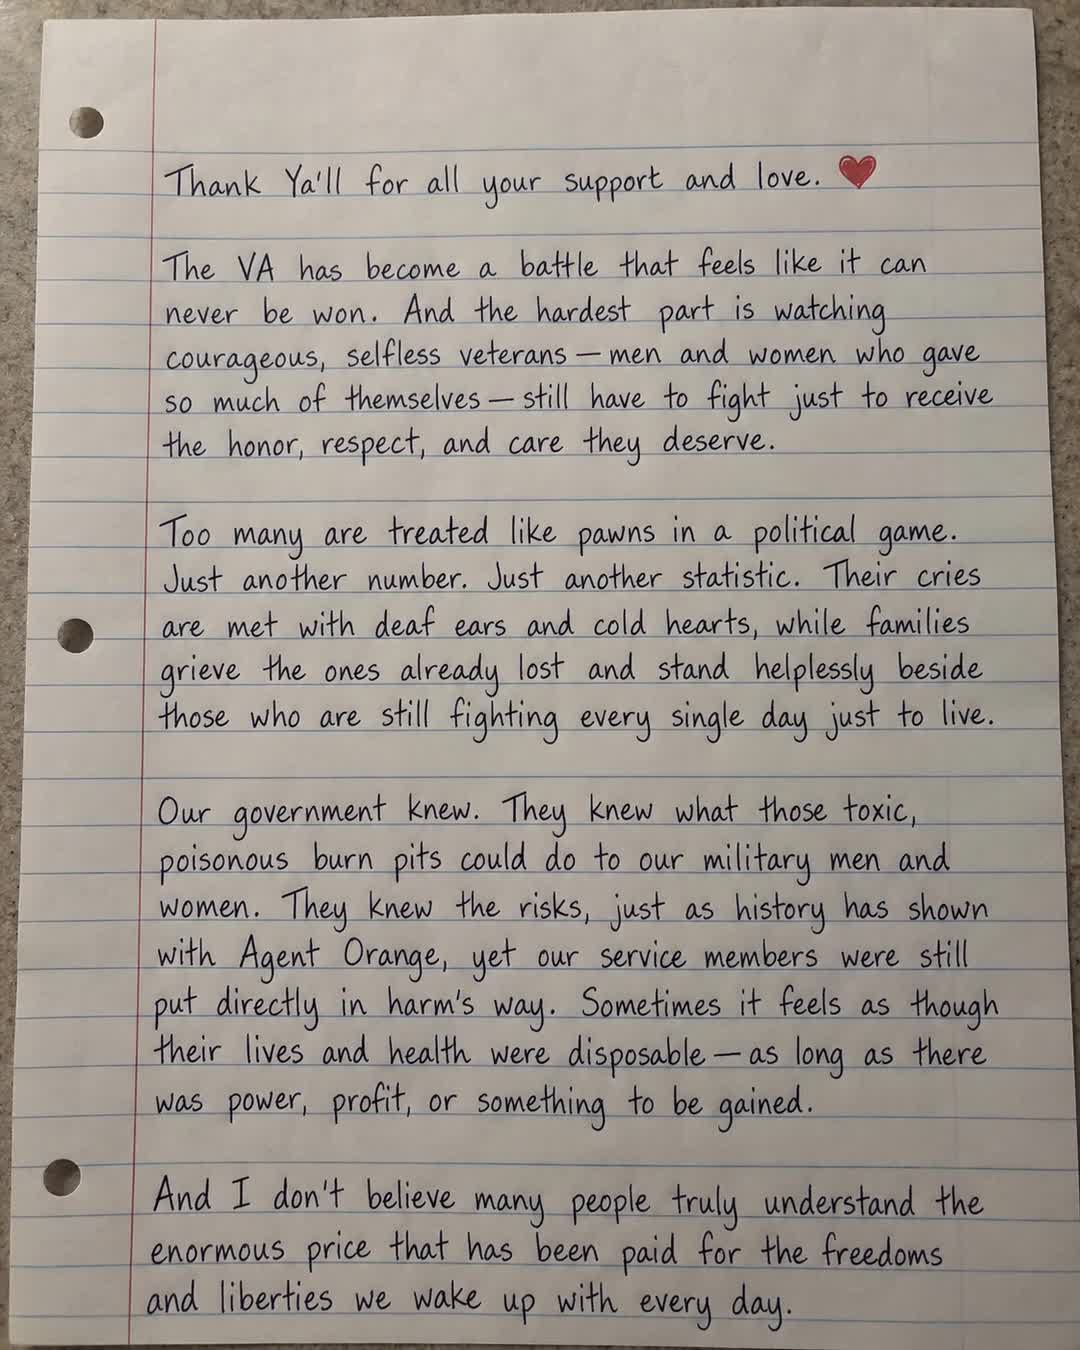 Thank Ya'll for all your support and love. ❤️
The VA has become a battle that feels like it can
never be won. And the hardest part is watching
courageous, selfless veterans — men and women who gave
so much of themselves — still have to fight just to receive
the honor, respect, and care they deserve.
Too many are treated like pawns in a political game.
Just another number. Just another statistic. Their cries
are met with deaf ears and cold hearts, while families
grieve the ones already lost and stand helplessly beside
those who are still fighting every single day just to live.
Our government knew. They knew what those toxic,
poisonous burn pits could do to our military men and
women. They knew the risks, just as history has shown
with Agent Orange, yet our service members were still
put directly in harm's way. Sometimes it feels as though
their lives and health were disposable — as long as there
was power, profit, or something to be gained.
And I don't believe many people truly understand the
enormous price that has been paid for the freedoms
and liberties we wake up with every day.